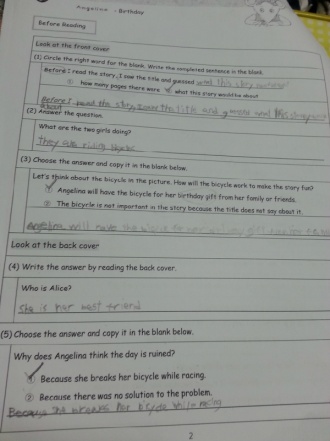 Angelina - Birthday
Before Reading
Look at the front cover
(1) Circle the right word for the blank. Write the completed sentence in the blank.
Before I read the story, I saw the title and guessed what this story
① how many pages there were ② what this story would be about
Before I read the story, I saw the title and guessed what this story
about
(2) Answer the question.
What are the two girls doing?
They are riding
(3) Choose the answer and copy it in the blank below.
Let's think about the bicycle in the picture. How will the bicycle work to make the story fun?
① Angelina will have the bicycle for her birthday gift from her family or friends.
② The bicycle is not important in the story because the title does not say about it.
Angelina will have the for her
Look at the back cover
(4) Write the answer by reading the back cover.
Who is Alice?
She is her best friend
(5) Choose the answer and copy it in the blank below.
Why does Angelina think the day is ruined?
① Because she breaks her bicycle while racing.
② Because there was no solution to the problem.
Because she her while racing
2